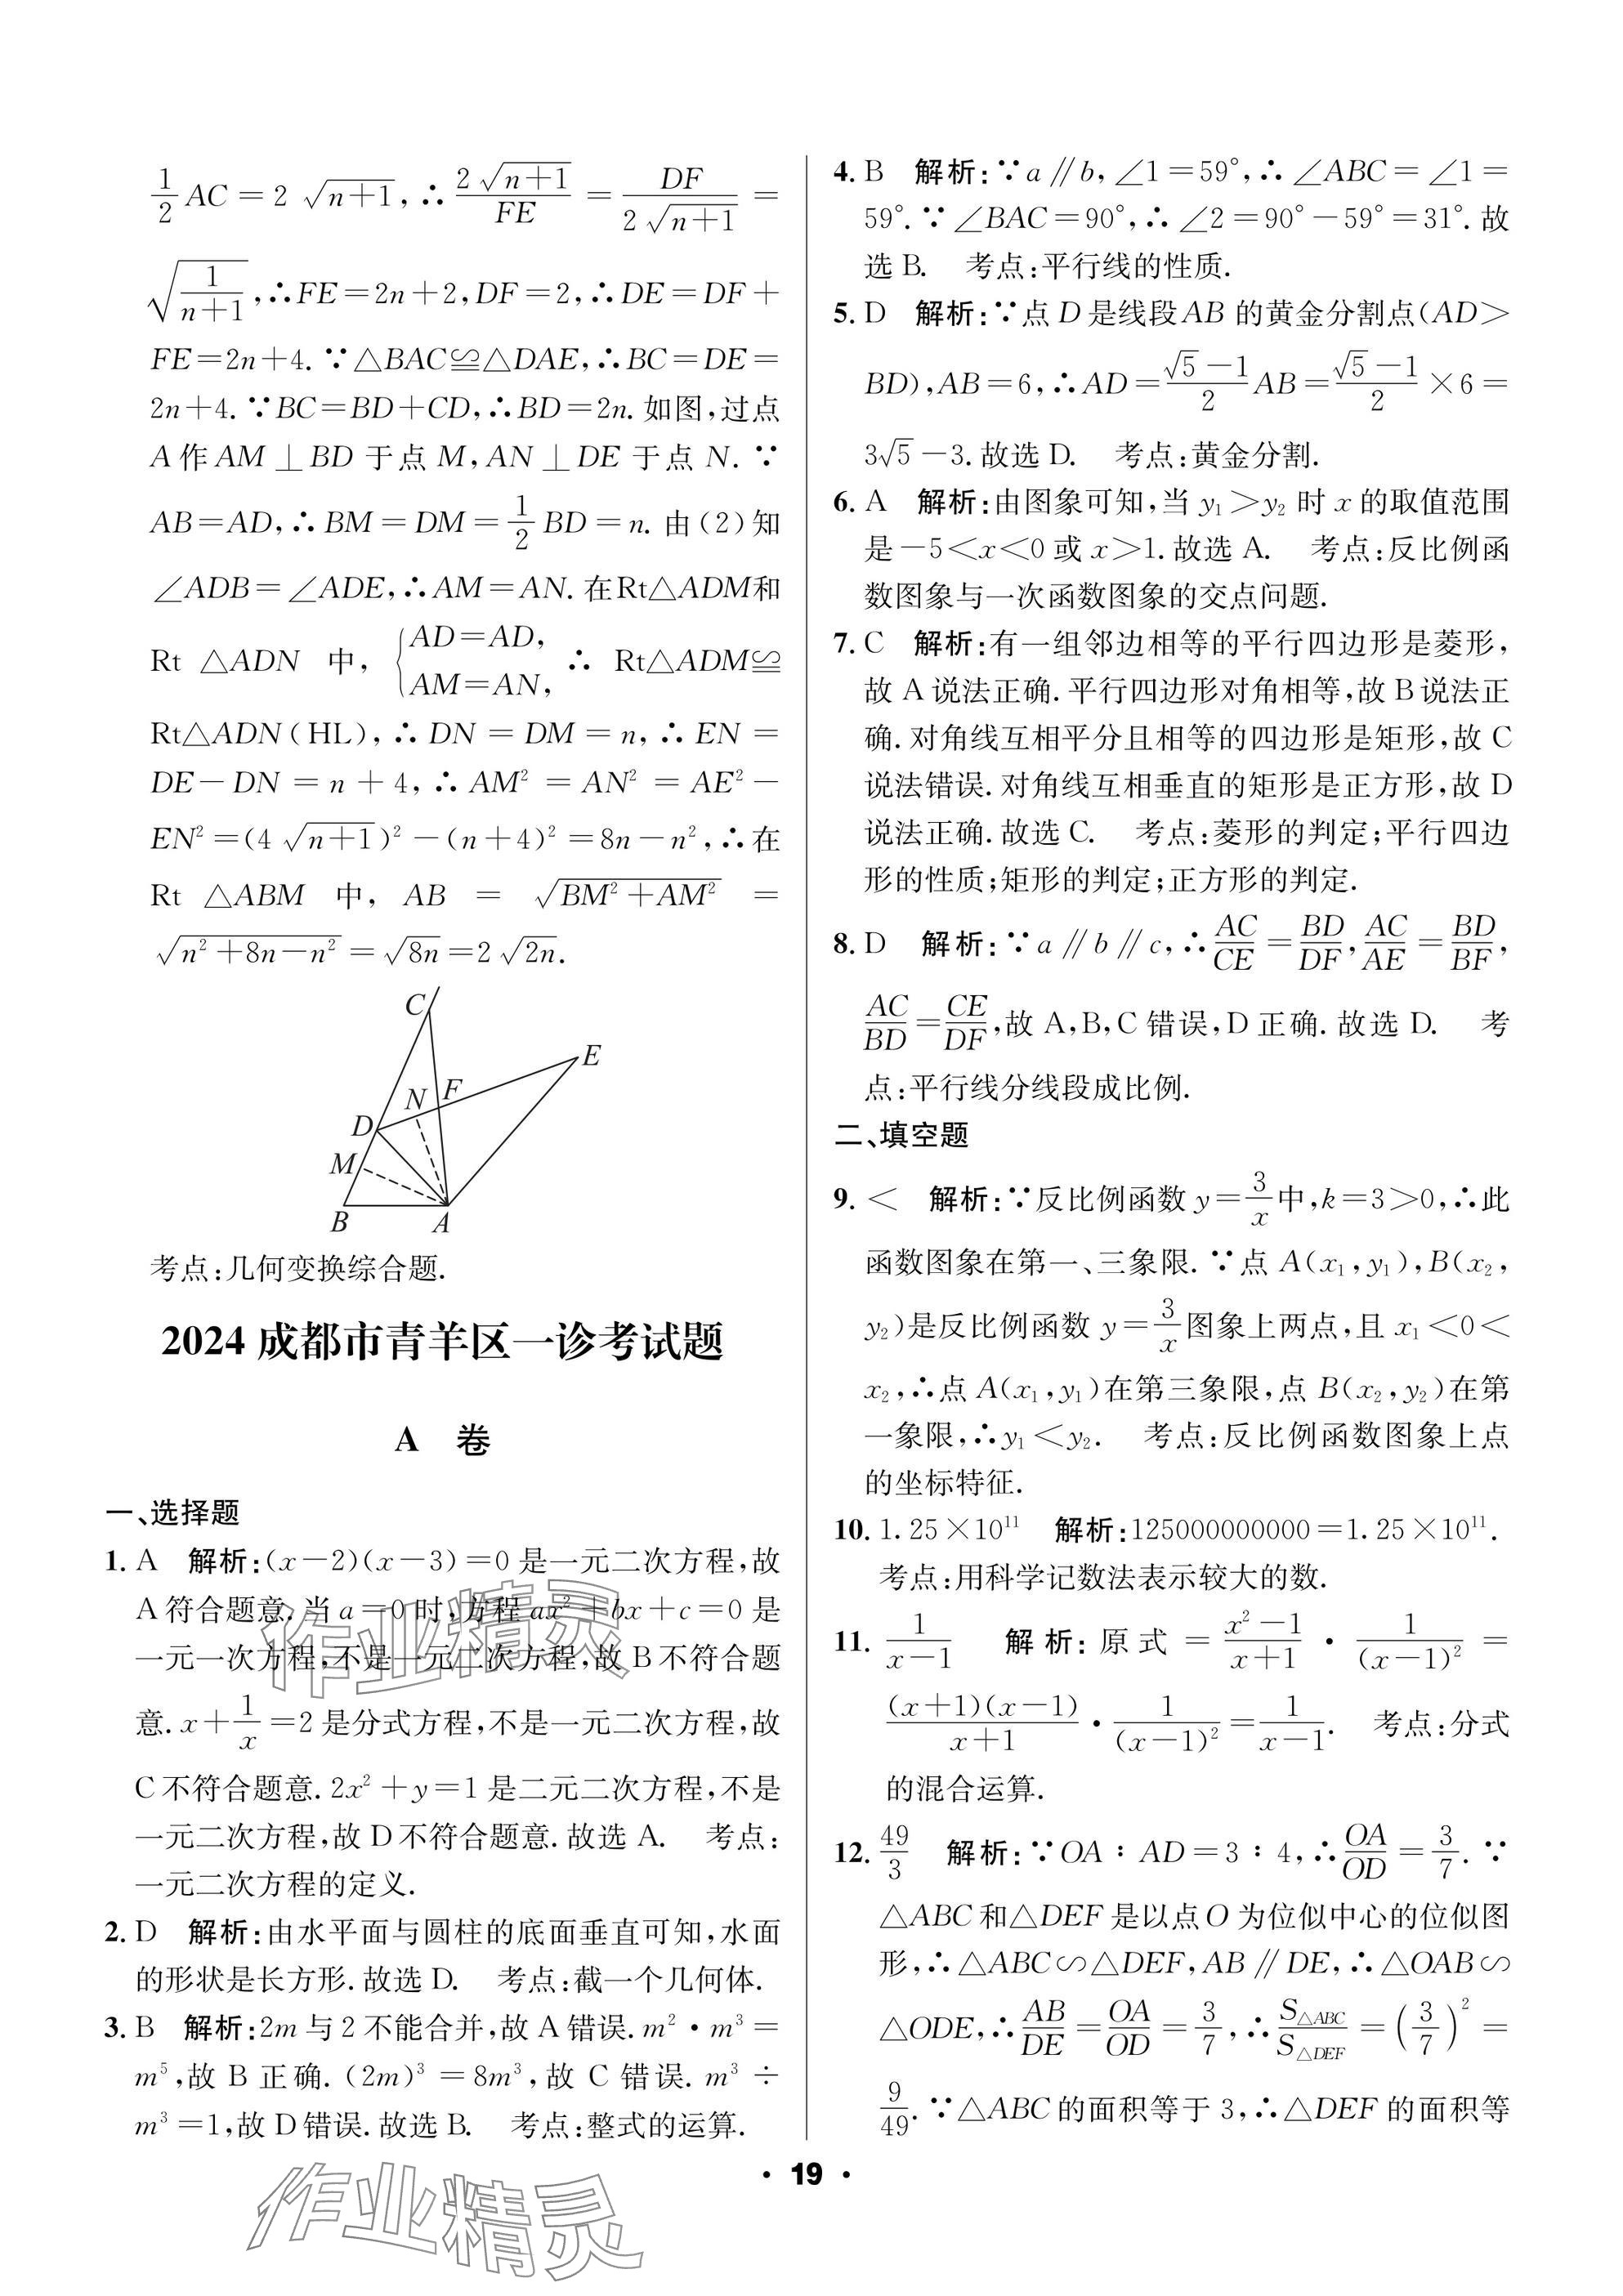 1/2 AC=2√(n+1),∴ 2√(n+1)/FE = DF/(2√(n+1)) =
√(1/(n+1)),∴FE=2n+2,DF=2,∴DE=DF+
FE=2n+4.∵△BAC≌△DAE,∴BC=DE=
2n+4.∵BC=BD+CD,∴BD=2n.如图,过点
A作AM⊥BD于点M,AN⊥DE于点N.∵
AB=AD,∴BM=DM=1/2 BD=n.由(2)知
∠ADB=∠ADE,∴AM=AN.在Rt△ADM和
Rt△ADN中,{AD=AD, AM=AN, ∴Rt△ADM≌
Rt△ADN(HL),∴DN=DM=n,∴EN=
DE-DN=n+4,∴AM²=AN²=AE²-
EN²=(4√(n+1))²-(n+4)²=8n-n²,∴在
Rt△ABM中,AB=√(BM²+AM²)=
√(n²+8n-n²)=√(8n)=2√(2n).
C
E
N F
D
M
B A
考点:几何变换综合题.
2024成都市青羊区一诊考试题
A 卷
一、选择题
1. A 解析:(x-2)(x-3)=0是一元二次方程,故
A符合题意.当a=0时,方程ax²+bx+c=0是
一元一次方程,不是一元二次方程,故B不符合题
意.x+1/x=2是分式方程,不是一元二次方程,故
C不符合题意.2x²+y=1是二元二次方程,不是
一元二次方程,故D不符合题意.故选A. 考点:
一元二次方程的定义.
2. D 解析:由水平面与圆柱的底面垂直可知,水面
的形状是长方形.故选D. 考点:截一个几何体.
3. B 解析:2m与2不能合并,故A错误.m²·m³=
m⁵,故B正确.(2m)³=8m³,故C错误.m³÷
m³=1,故D错误.故选B. 考点:整式的运算.
4. B 解析:∵a∥b,∠1=59°,∴∠ABC=∠1=
59°.∵∠BAC=90°,∴∠2=90°-59°=31°.故
选B. 考点:平行线的性质.
5. D 解析:∵点D是线段AB的黄金分割点(AD>
BD),AB=6,∴AD=(√5-1)/2 AB=(√5-1)/2×6=
3√5-3.故选D. 考点:黄金分割.
6. A 解析:由图象可知,当y₁>y₂时x的取值范围
是-5<x<0或x>1.故选A. 考点:反比例函
数图象与一次函数图象的交点问题.
7. C 解析:有一组邻边相等的平行四边形是菱形,
故A说法正确.平行四边形对角相等,故B说法正
确.对角线互相平分且相等的四边形是矩形,故C
说法错误.对角线互相垂直的矩形是正方形,故D
说法正确.故选C. 考点:菱形的判定;平行四边
形的性质;矩形的判定;正方形的判定.
8. D 解析:∵a∥b∥c,∴AC/CE=BD/DF,AC/AE=BD/BF,
AC/BD=CE/DF,故A,B,C错误,D正确.故选D. 考
点:平行线分线段成比例.
二、填空题
9. < 解析:∵反比例函数y=3/x中,k=3>0,∴此
函数图象在第一、三象限.∵点A(x₁,y₁),B(x₂,
y₂)是反比例函数y=3/x图象上两点,且x₁<0<
x₂,∴点A(x₁,y₁)在第三象限,点B(x₂,y₂)在第
一象限,∴y₁<y₂. 考点:反比例函数图象上点
的坐标特征.
10. 1.25×10¹¹ 解析:125000000000=1.25×10¹¹.
考点:用科学记数法表示较大的数.
11. 1/(x-1) 解析:原式=(x²-1)/(x+1)·1/(x-1)²=
(x+1)(x-1)/(x+1)·1/(x-1)²=1/(x-1). 考点:分式
的混合运算.
12. 49/3 解析:∵OA∶AD=3∶4,∴OA/OD=3/7.∵
△ABC和△DEF是以点O为位似中心的位似图
形,∴△ABC∽△DEF,AB∥DE,∴△OAB∽
△ODE,∴AB/DE=OA/OD=3/7,∴S△ABC/S△DEF=(3/7)²=
9/49.∵△ABC的面积等于3,∴△DEF的面积等
·19·
作业精灵
作业精灵